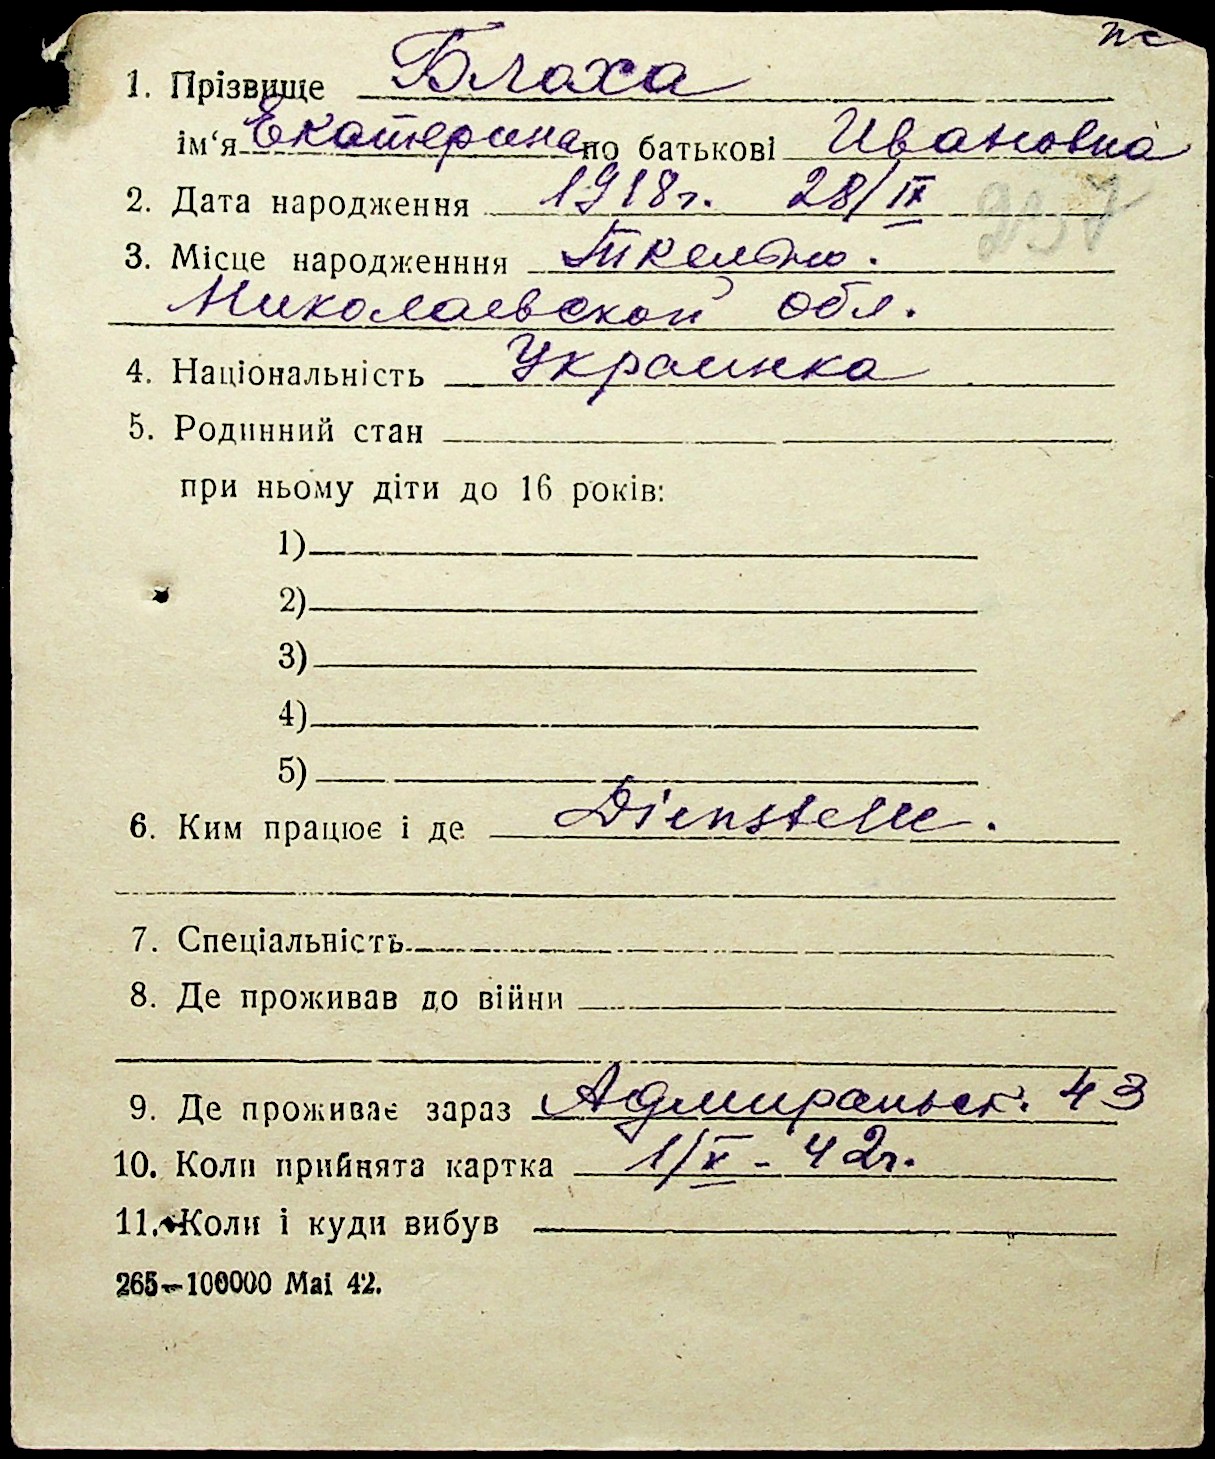 пс
1. Прізвище Блаха
ім‘я Екатерина по батькові Ивановна
2. Дата народження 1918 г. 28/IX
237
3. Місце народженння
Николаевской обл.
4. Національність Украинка
5. Родинний стан
при ньому діти до 16 років:
1)
2)
3)
4)
5)
6. Ким працює і де Dienstelle.
7. Спеціальність
8. Де проживав до війни
9. Де проживає зараз Адмиральск. 43
10. Коли прийнята картка 1/X - 42 г.
11. Коли і куди вибув
265—100000 Mai 42.